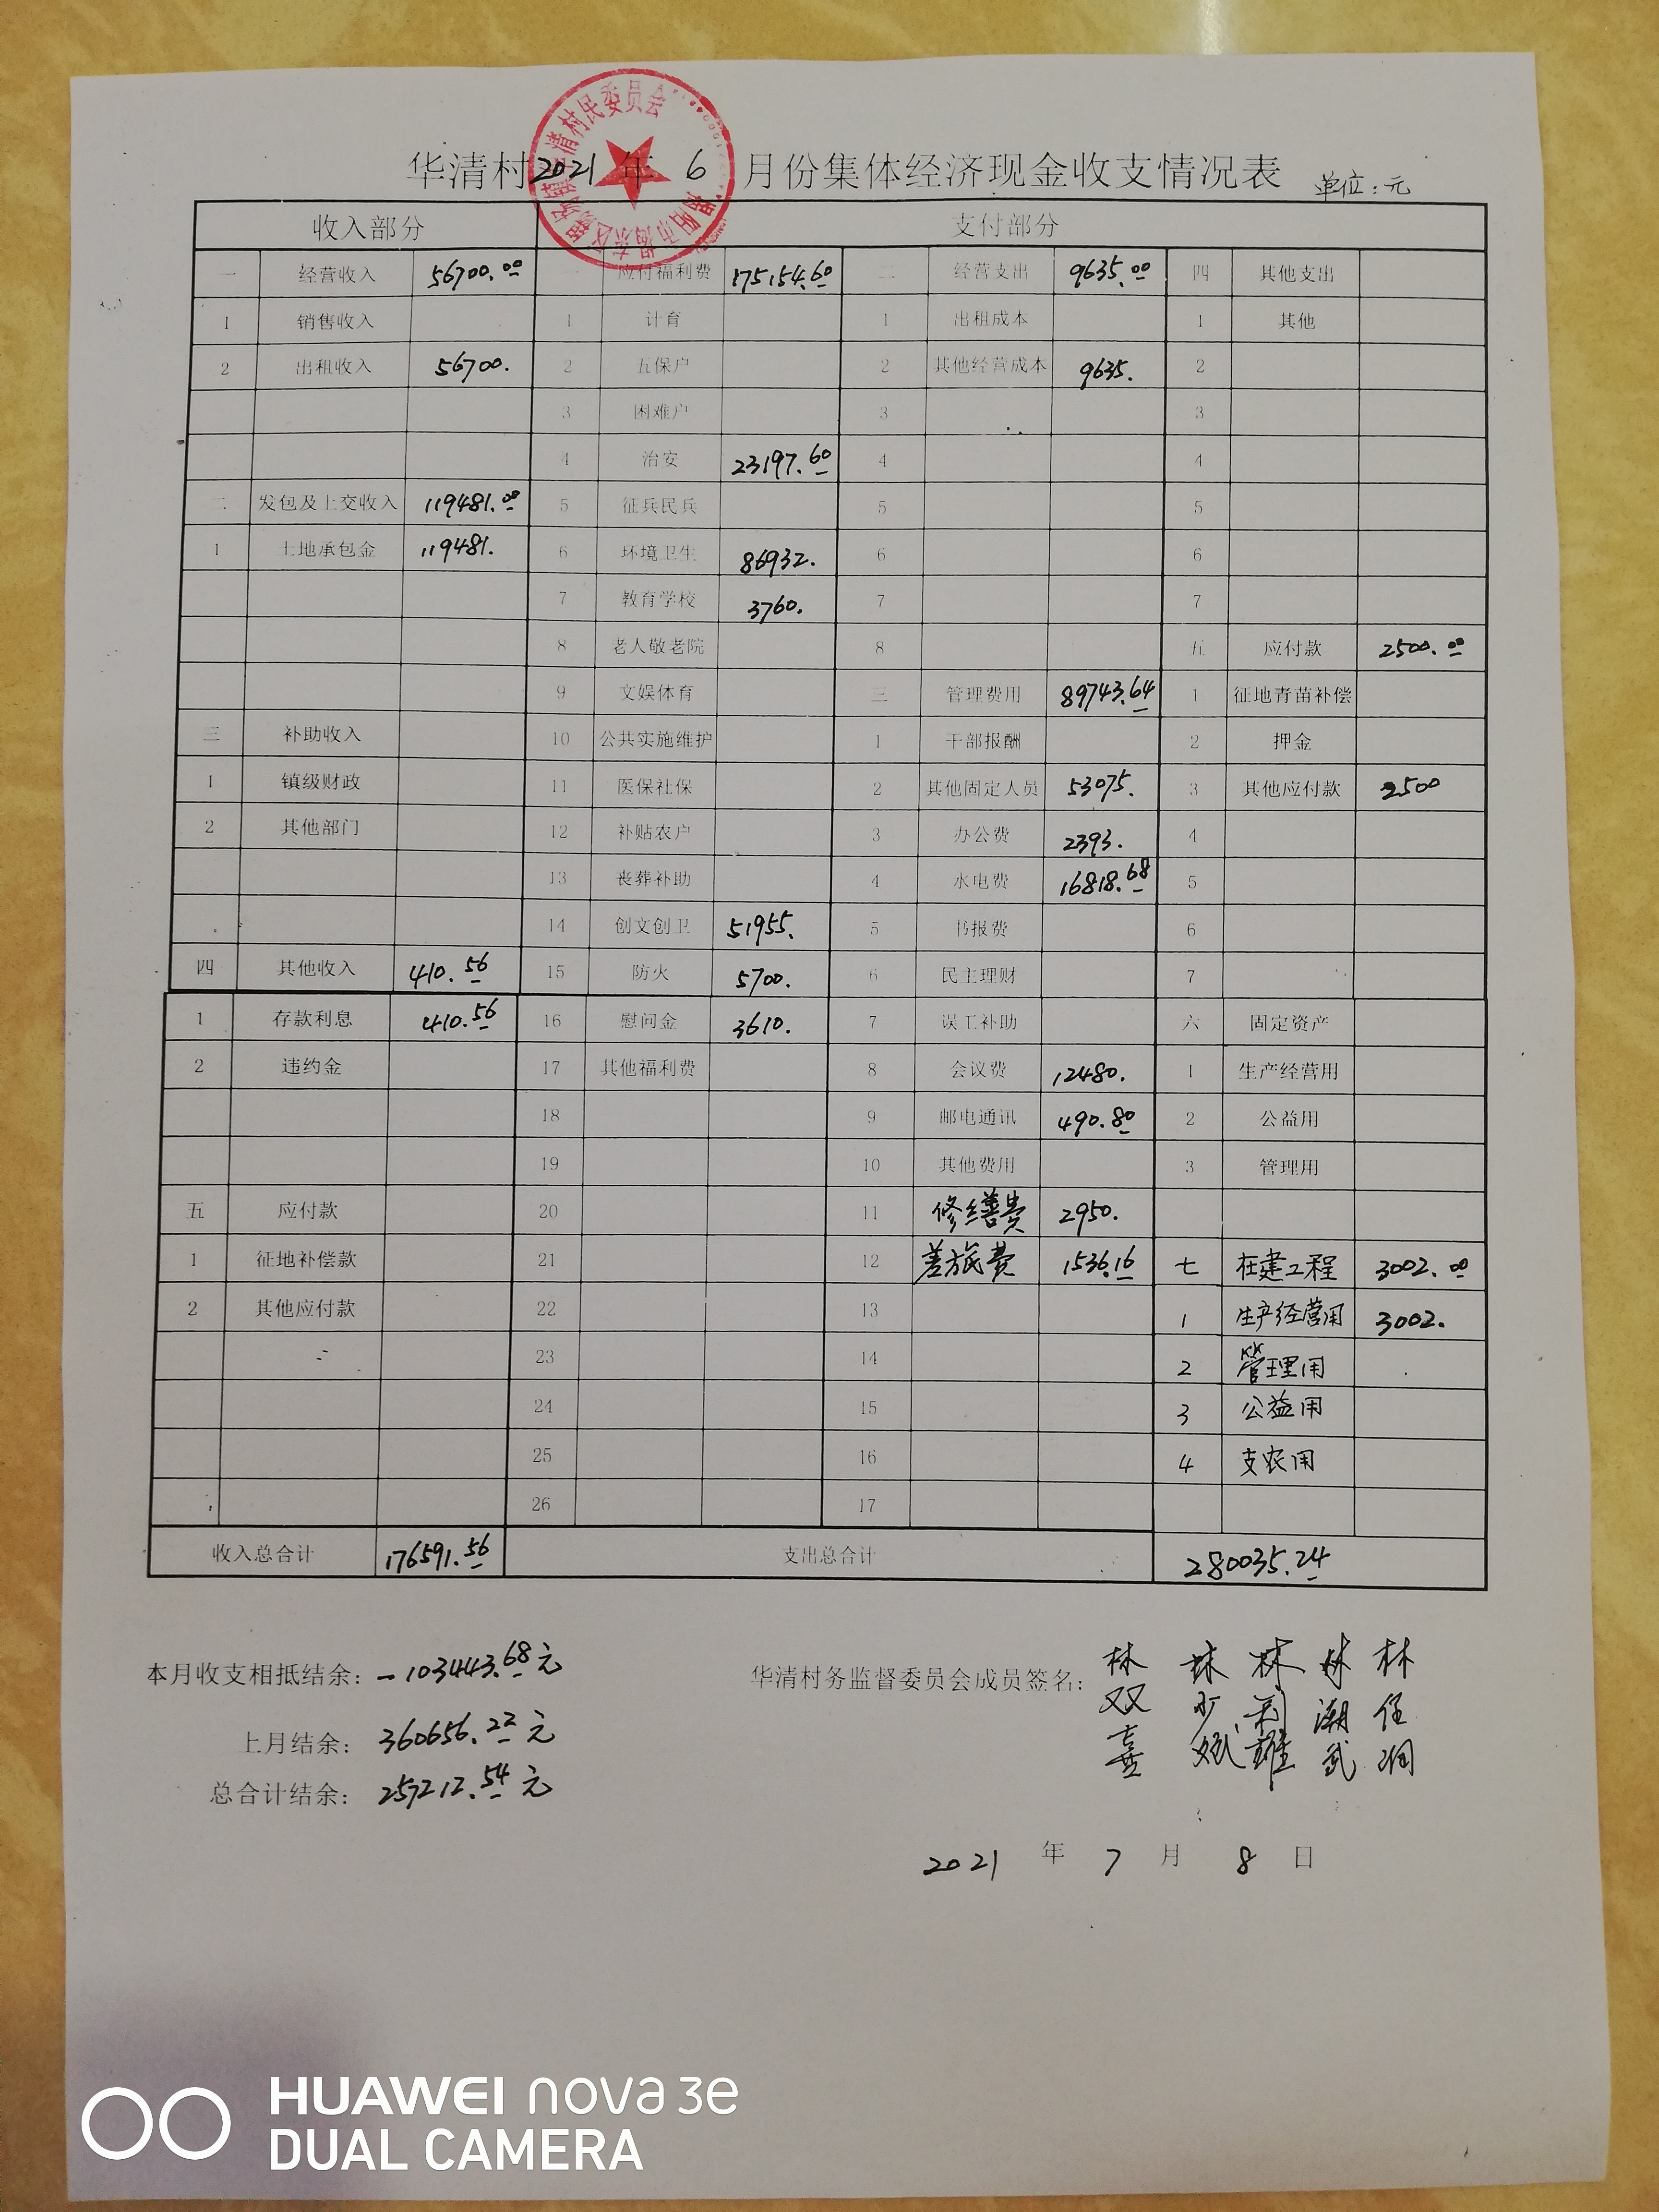 华清村2021年 6 月份集体经济现金收支情况表 单位:元
收入部分 支付部分
一 经营收入 56700.00 应付福利费 175154.60 二 经营支出 9635.00 四 其他支出
1 销售收入 1 计育 1 出租成本 1 其他
2 出租收入 56700. 2 五保户 2 其他经营成本 9635. 2
3 困难户 3 3
4 治安 23197.60 4 4
二 发包及上交收入 119481.00 5 征兵民兵 5 5
1 土地承包金 119481. 6 环境卫生 86932. 6 6
7 教育学校 3760. 7 7
8 老人敬老院 8 五 应付款 2500.00
9 文娱体育 三 管理费用 89743.64 1 征地青苗补偿
三 补助收入 10 公共实施维护 1 干部报酬 2 押金
1 镇级财政 11 医保社保 2 其他固定人员 53075. 3 其他应付款 2500
2 其他部门 12 补贴农户 3 办公费 2393. 4
13 丧葬补助 4 水电费 16818.68 5
14 创文创卫 51955. 5 书报费 6
四 其他收入 410.56 15 防火 5700. 6 民主理财 7
1 存款利息 410.56 16 慰问金 3610. 7 误工补助 六 固定资产
2 违约金 17 其他福利费 8 会议费 12480. 1 生产经营用
18 9 邮电通讯 490.80 2 公益用
19 10 其他费用 3 管理用
五 应付款 20 11 修缮费 2950.
1 征地补偿款 21 12 差旅费 1536.16 七 在建工程 3002.00
2 其他应付款 22 13 1 生产经营用 3002.
23 14 2 管理用
24 15 3 公益用
25 16 4 支农用
26 17
收入总合计 176591.56 支出总合计 280035.24
本月收支相抵结余: -103443.68元
上月结余: 360656.22元
总合计结余: 257212.54元
华清村务监督委员会成员签名: 林双喜 林少斌 林利雄 林潮武 林任润
2021 年 7 月 8 日
HUAWEI nova 3e
DUAL CAMERA